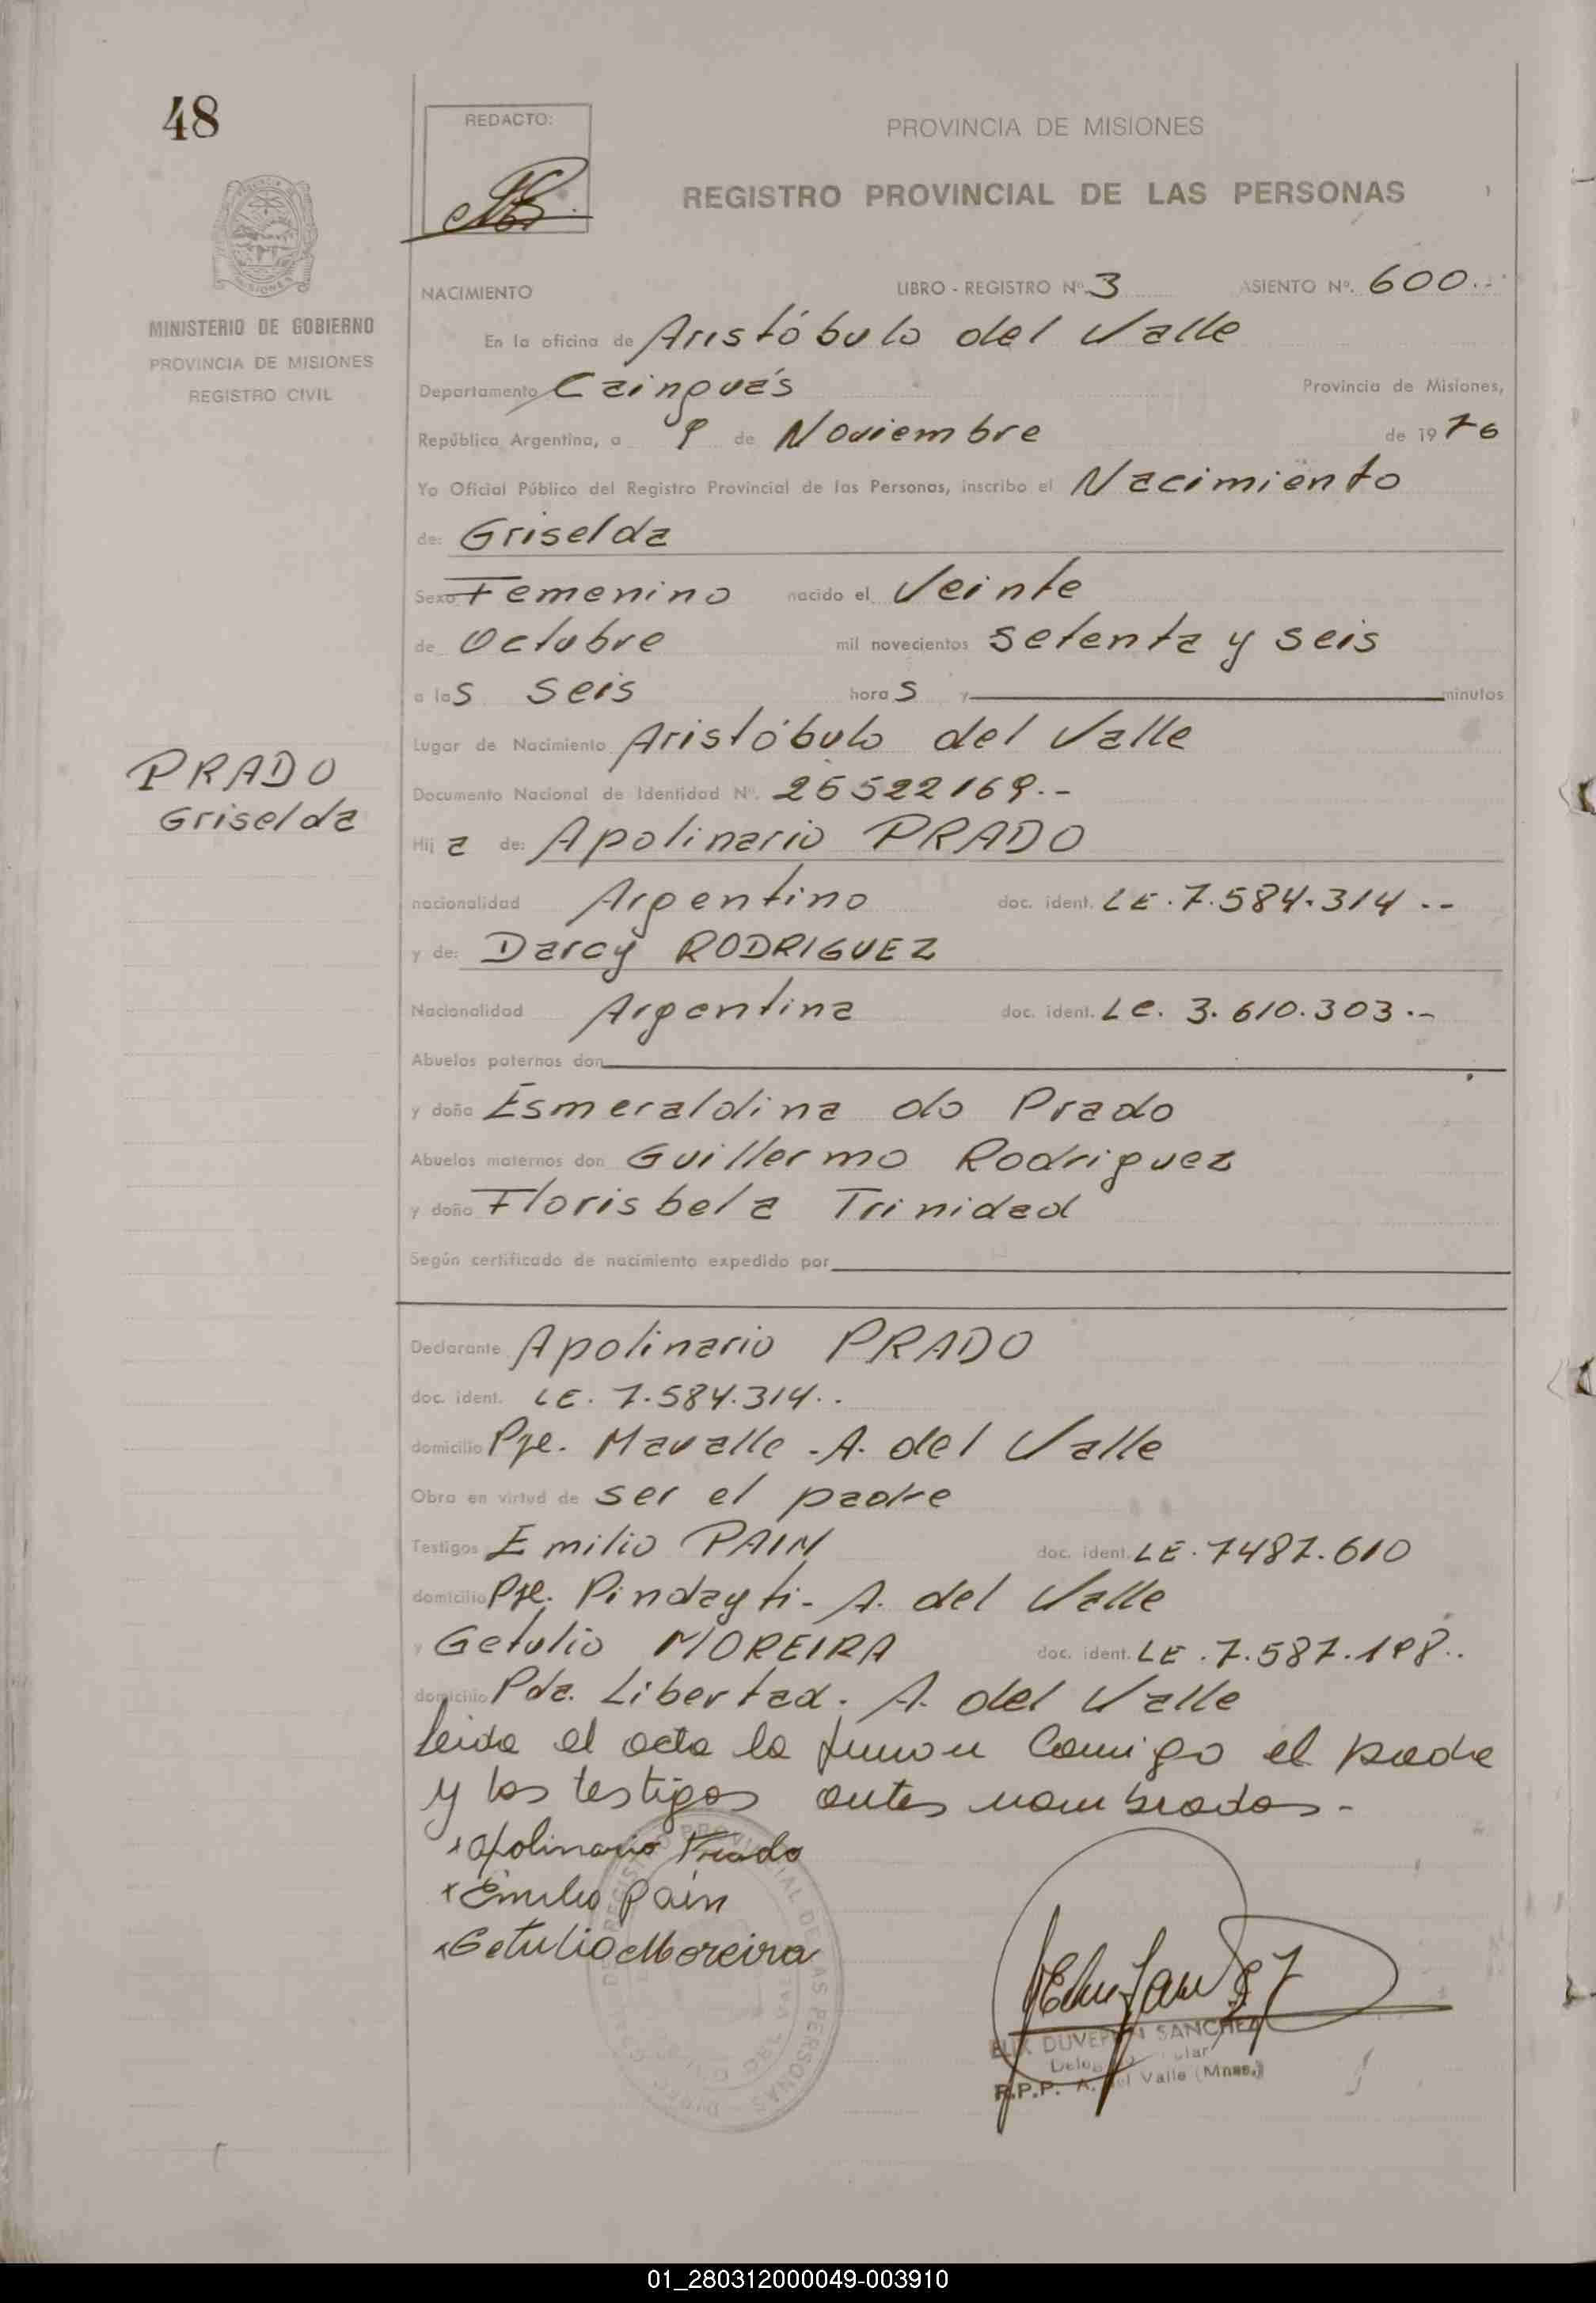 48
REDACTO:
PROVINCIA DE MISIONES
REGISTRO PROVINCIAL DE LAS PERSONAS
MINISTERIO DE GOBIERNO
PROVINCIA DE MISIONES
REGISTRO CIVIL
NACIMIENTO LIBRO - REGISTRO Nº 3 ASIENTO Nº. 600.-
En la oficina de Aristóbulo del Valle
Departamento Cainguás Provincia de Misiones,
República Argentina, a 9 de Noviembre de 1976
Yo Oficial Público del Registro Provincial de las Personas, inscribo el Nacimiento
de: Griselda
Sexo Femenino nacido el Veinte
de Octubre mil novecientos setenta y seis
a las seis horas y minutos
Lugar de Nacimiento Aristóbulo del Valle
PRADO
Griselda
Documento Nacional de Identidad Nº. 25522169.-
Hija de: Apolinario PRADO
nacionalidad Argentino doc. ident. LE. 7.584.314.-
y de: Darcy RODRIGUEZ
Nacionalidad Argentina doc. ident. Lc. 3.610.303.-
Abuelos paternos don
y doña Esmeraldina do Prado
Abuelos maternos don Guillermo Rodriguez
y doña Florisbela Trinidad
Según certificado de nacimiento expedido por
Declarante Apolinario PRADO
doc. ident. LE. 7.584.314..
domicilio Pje. Mavalle - A. del Valle
Obra en virtud de ser el padre
Testigos Emilio PAIN doc. ident. LE. 7487.610
domicilio Pje. Pindayti - A. del Valle
y Getulio MOREIRA doc. ident. LE. 7.587.198..
domicilio Pda. Libertad. A. del Valle
leida el acta la firman Comigo el padre
y los testigos antes nombrados.-
Apolinario Prado
Emilio Pain
Getulio Moreira
SANCHEZ
R.P.P. A. del Valle (Mnes.)
01_280312000049-003910